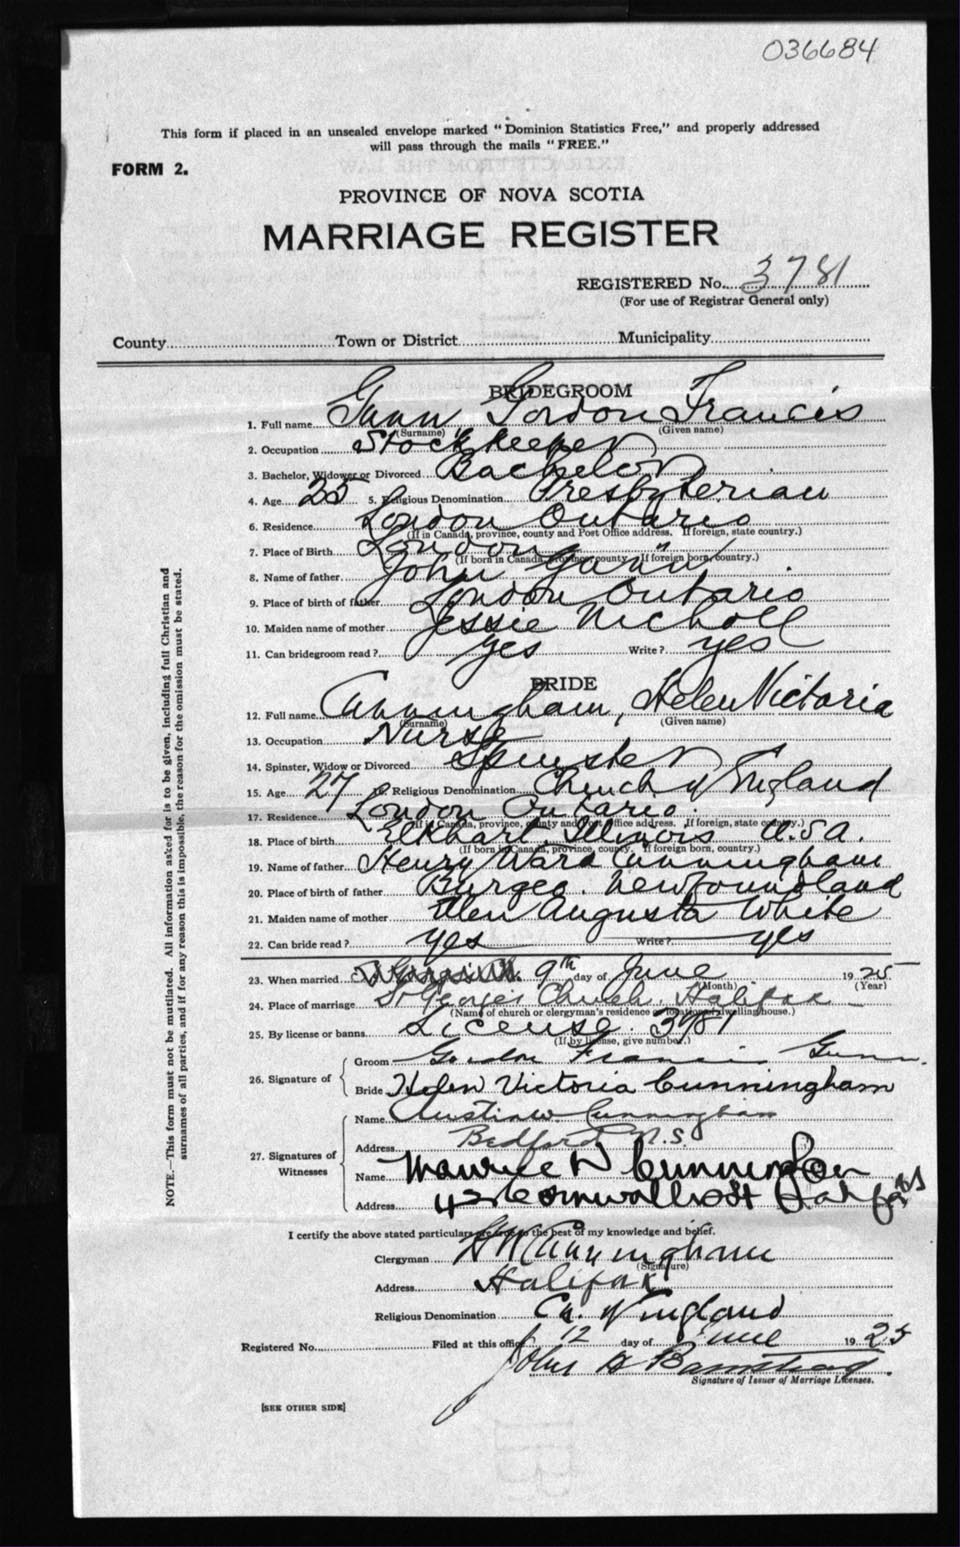 036684
This form if placed in an unsealed envelope marked "Dominion Statistics Free," and properly addressed
will pass through the mails "FREE."
FORM 2.
PROVINCE OF NOVA SCOTIA
MARRIAGE REGISTER
REGISTERED No. 3781
(For use of Registrar General only)
County Town or District Municipality
BRIDEGROOM
1. Full name Gunn, Gordon Francis
(Surname) (Given name)
2. Occupation Stock keeper
3. Bachelor, Widower or Divorced Bachelor
4. Age 25 5. Religious Denomination Presbyterian
6. Residence London Ontario
(If in Canada, province, county and Post Office address. If foreign, state country.)
7. Place of Birth London "
(If born in Canada, province, county. If foreign born, country.)
8. Name of father John Gunn
9. Place of birth of father London Ontario
10. Maiden name of mother Jessie Nicholl
11. Can bridegroom read? yes Write? yes
BRIDE
12. Full name Cunningham, Helen Victoria
(Surname) (Given name)
13. Occupation Nurse
14. Spinster, Widow or Divorced Spinster
15. Age 27 16. Religious Denomination Church of England
17. Residence London Ontario.
(If in Canada, province, county and Post Office address. If foreign, state country.)
18. Place of birth Elkhart Illinois U.S.A.
(If born in Canada, province, county. If foreign born, country.)
19. Name of father Henry Ward Cunningham
20. Place of birth of father Burgeo. Newfoundland
21. Maiden name of mother Ellen Augusta White
22. Can bride read? yes Write? yes
23. When married 9th day of June 1925
(Month) (Year)
24. Place of marriage St Georges Church. Halifax
(Name of church or clergyman's residence or location of dwelling house.)
25. By license or banns License. 3781
(If by license, give number.)
26. Signature of
Groom Gordon Francis Gunn.
Bride Helen Victoria Cunningham
27. Signatures of Witnesses
Name Cunningham
Address Bedford N.S.
Name Maurice D Cunningham
Address 42 Cornwallis St Halifax NS
I certify the above stated particulars are true to the best of my knowledge and belief.
Clergyman H W Cunningham
(Signature)
Address Halifax
Religious Denomination Ch. of England
Registered No. Filed at this office 12 day of June 1925
John
Signature of Issuer of Marriage Licenses.
[SEE OTHER SIDE]
NOTE.—This form must not be mutilated. All information asked for is to be given, including full Christian and
surnames of all parties, and if for any reason this is impossible, the reason for the omission must be stated.